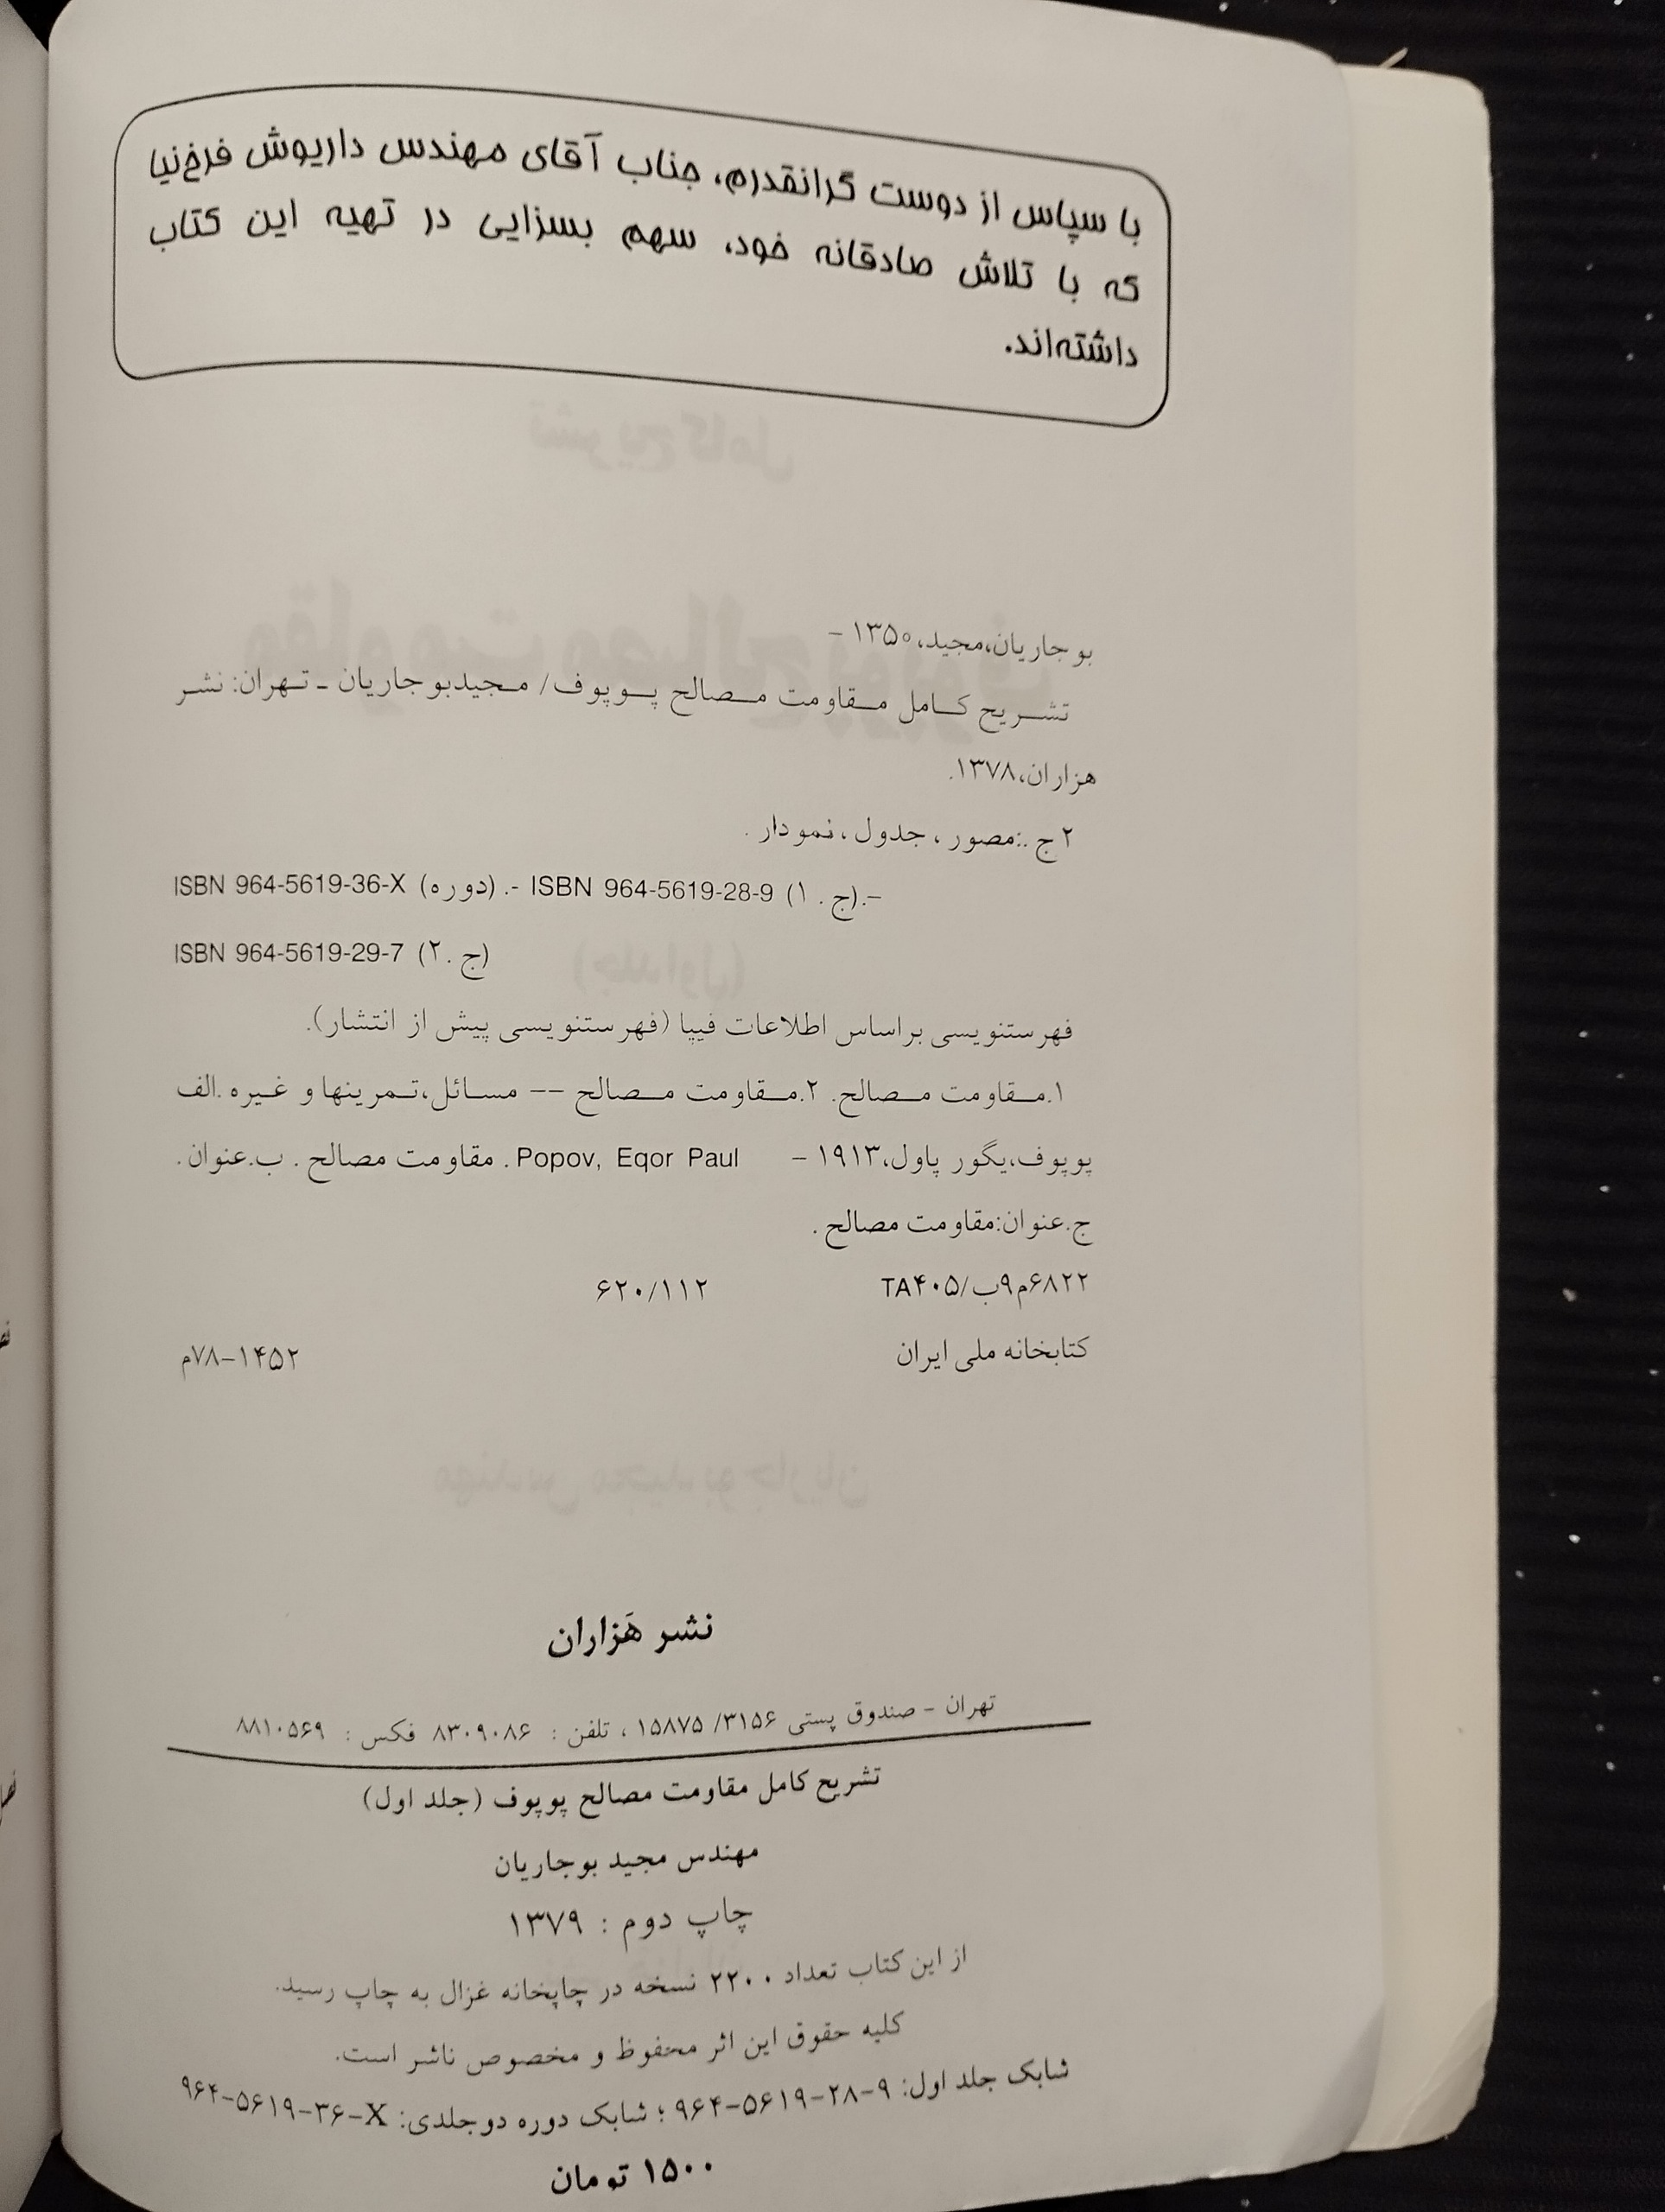 با سپاس از دوست گرانقدرم، جناب آقای مهندس داریوش فرخ‌نیا
که با تلاش صادقانه خود، سهم بسزایی در تهیه این کتاب
داشته‌اند.
بوجاریان،مجید،۱۳۵۰ -
تشریح کامل مقاومت مصالح پوپوف/ مجیدبوجاریان - تهران: نشر
هزاران،۱۳۷۸.
۲ ج .:مصور ، جدول ، نمودار .
ISBN 964-5619-36-X (دوره) .- ISBN 964-5619-28-9 (ج . ۱).-
ISBN 964-5619-29-7 (ج . ۲)
فهرستنویسی براساس اطلاعات فیپا (فهرستنویسی پیش از انتشار).
۱.مقاومت مصالح. ۲.مقاومت مصالح -- مسائل،تمرینها و غیره .الف
پوپوف،یگور پاول،۱۹۱۳ - Popov, Eqor Paul . مقاومت مصالح . ب.عنوان .
ج.عنوان:مقاومت مصالح .
۶۸۲۲م۹ب/TA۴۰۵ ۶۲۰/۱۱۲
کتابخانه ملی ایران ۱۴۵۲-۷۸م
نشر هَزاران
تهران - صندوق پستی ۳۱۵۶/ ۱۵۸۷۵ ، تلفن : ۸۳۰۹۰۸۶ فکس : ۸۸۱۰۵۶۹
تشریح کامل مقاومت مصالح پوپوف (جلد اول)
مهندس مجید بوجاریان
چاپ دوم : ۱۳۷۹
از این کتاب تعداد ۲۲۰۰ نسخه در چاپخانه غزال به چاپ رسید.
کلیه حقوق این اثر محفوظ و مخصوص ناشر است.
شابک جلد اول: ۹-۲۸-۵۶۱۹-۹۶۴ ؛ شابک دوره دوجلدی: X-۳۶-۵۶۱۹-۹۶۴
۱۵۰۰ تومان